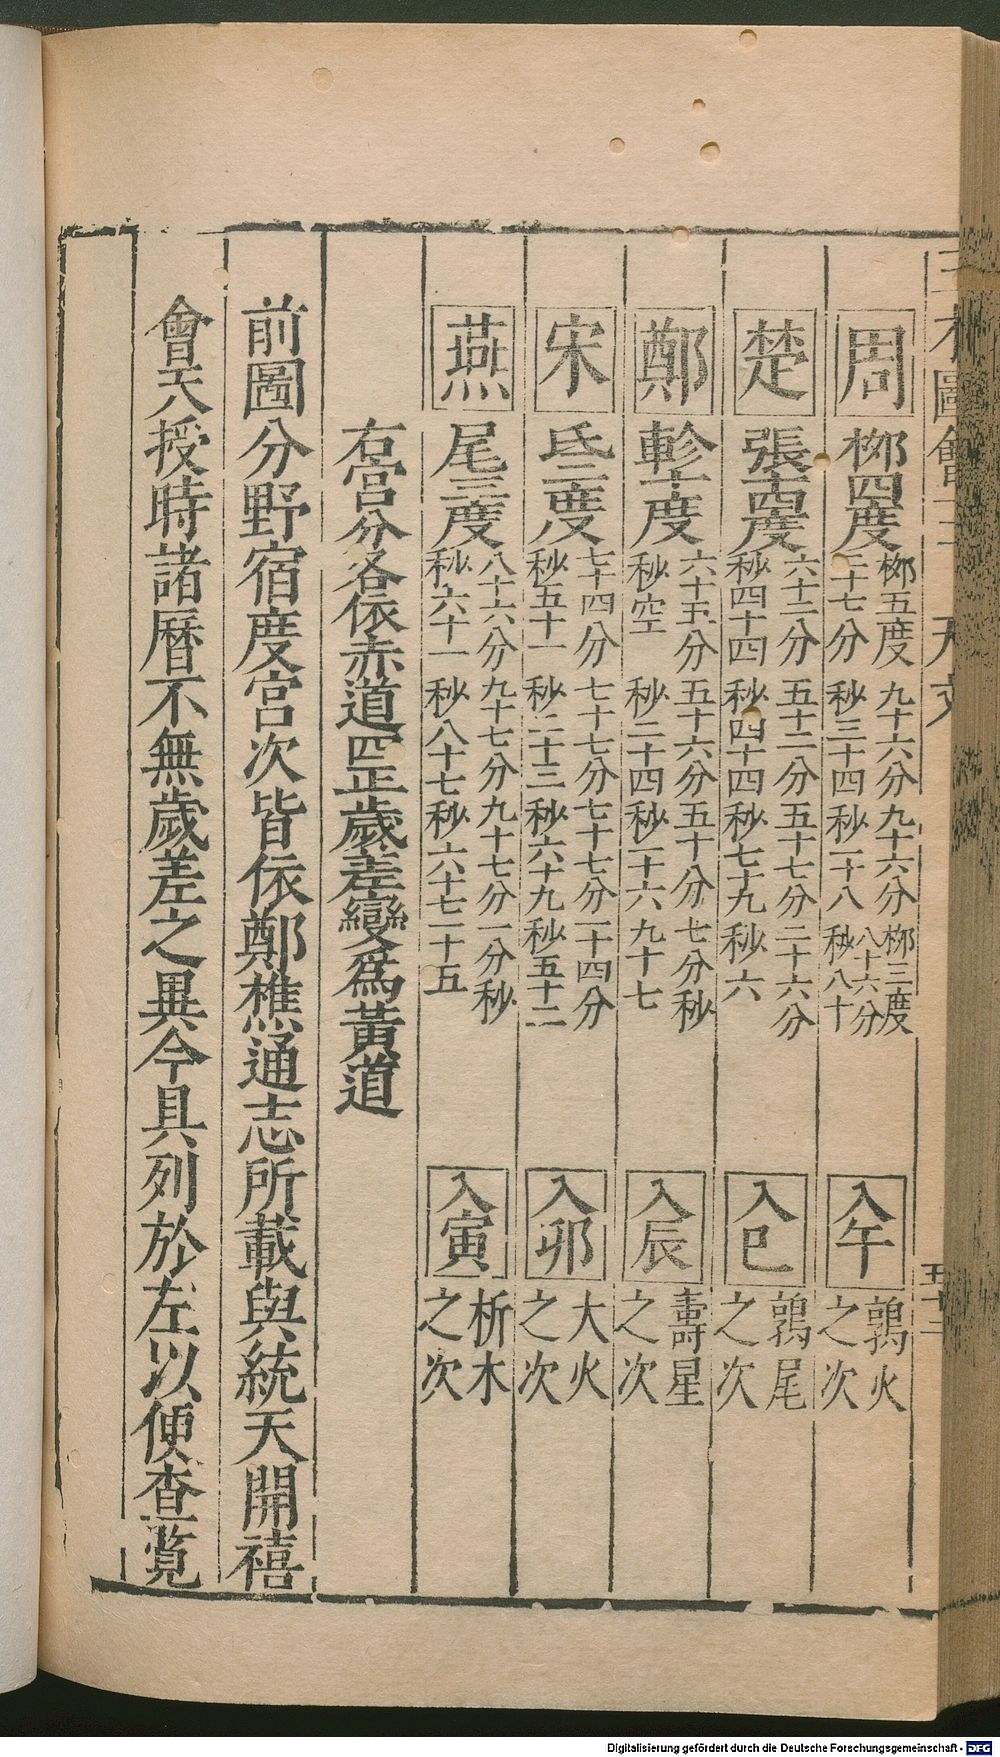 圖會 天文 五十二
周 柳四度 柳五度 二十七分 九十六分 秒三十四 九十六分 秒一十八 柳三度 八十六分 秒八十 入午 鶉火之次
楚 張十四度 六十二分 秒四十四 五十二分 秒四十四 五十七分 秒七十九 二十六分 秒六 入巳 鶉尾之次
鄭 軫十度 六十五分 秒空 五十六分 秒二十四 五十八分 秒一十六 七分秒九十七 入辰 壽星之次
宋 氐二度 七十四分 秒五十一 七十七分 秒二十三 七十七分 秒六十九 一十四分 秒五十二 入卯 大火之次
燕 尾三度 八十六分 秒六十一 九十七分 秒八十七 九十七分 秒六十七 一分秒二十五 入寅 析木之次
右宮分各依赤道四正歲差變爲黃道
前圖分野宿度宮次皆依鄭樵通志所載與統天開禧
會天授時諸曆不無歲差之異今具列於左以便查覽
Digitalisierung gefördert durch die Deutsche Forschungsgemeinschaft - DFG